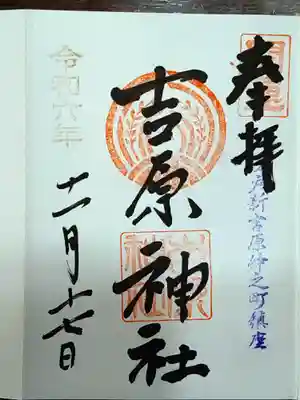 奉拝
江戸新吉原仲之町鎮座
吉原神社
令和六年
十一月十七日